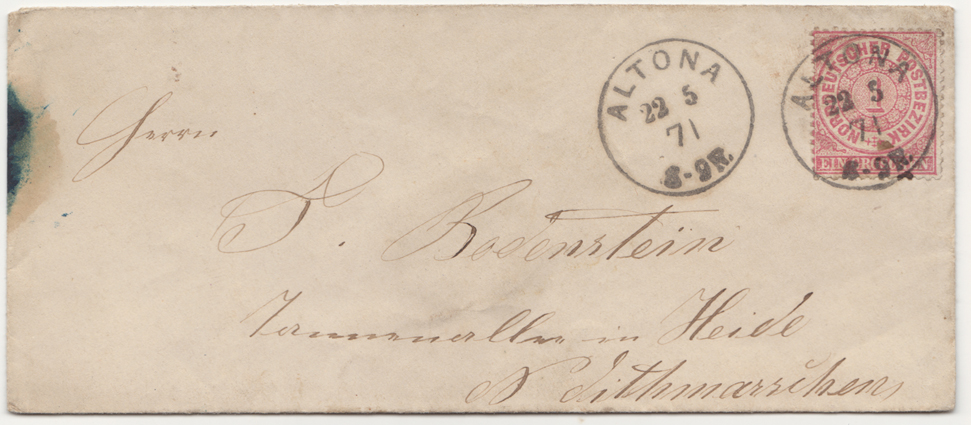 ALTONA
22 5
71
8-9N.
ALTONA
22 5
71
8-9N.
NORDDEUTSCHER POSTBEZIRK
1
EIN GROSCHEN
Herrn
T. Bodenstein
Tannenallee in Heide
N Dithmarschen